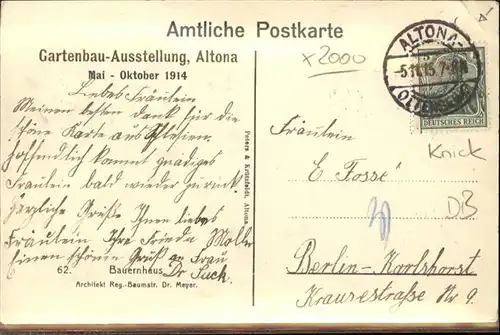 Amtliche Postkarte
Gartenbau-Ausstellung, Altona
Mai - Oktober 1914
x2000
ALTONA
-5.11.15.7-8N
OTTENSEN
DEUTSCHES REICH
Knick
DB
Liebes Fräulein
Meinen besten Dank für die
schöne Karte aus Schlesien.
Hoffendlich kommt gnädiges
Fräulein bald wieder zurück.
Herzliche Grüße Ihnen liebes
Fräulein Ihre Frieda Moller
Einen schönen Gruß an Frau
Dr Such.
62. Bauernhaus.
Architekt Reg.-Baumstr. Dr. Meyer.
Peters & Kritzfeldt, Altona
Fräulein
E. Fossé
Berlin-Karlshorst
Krausestraße Nr 9.